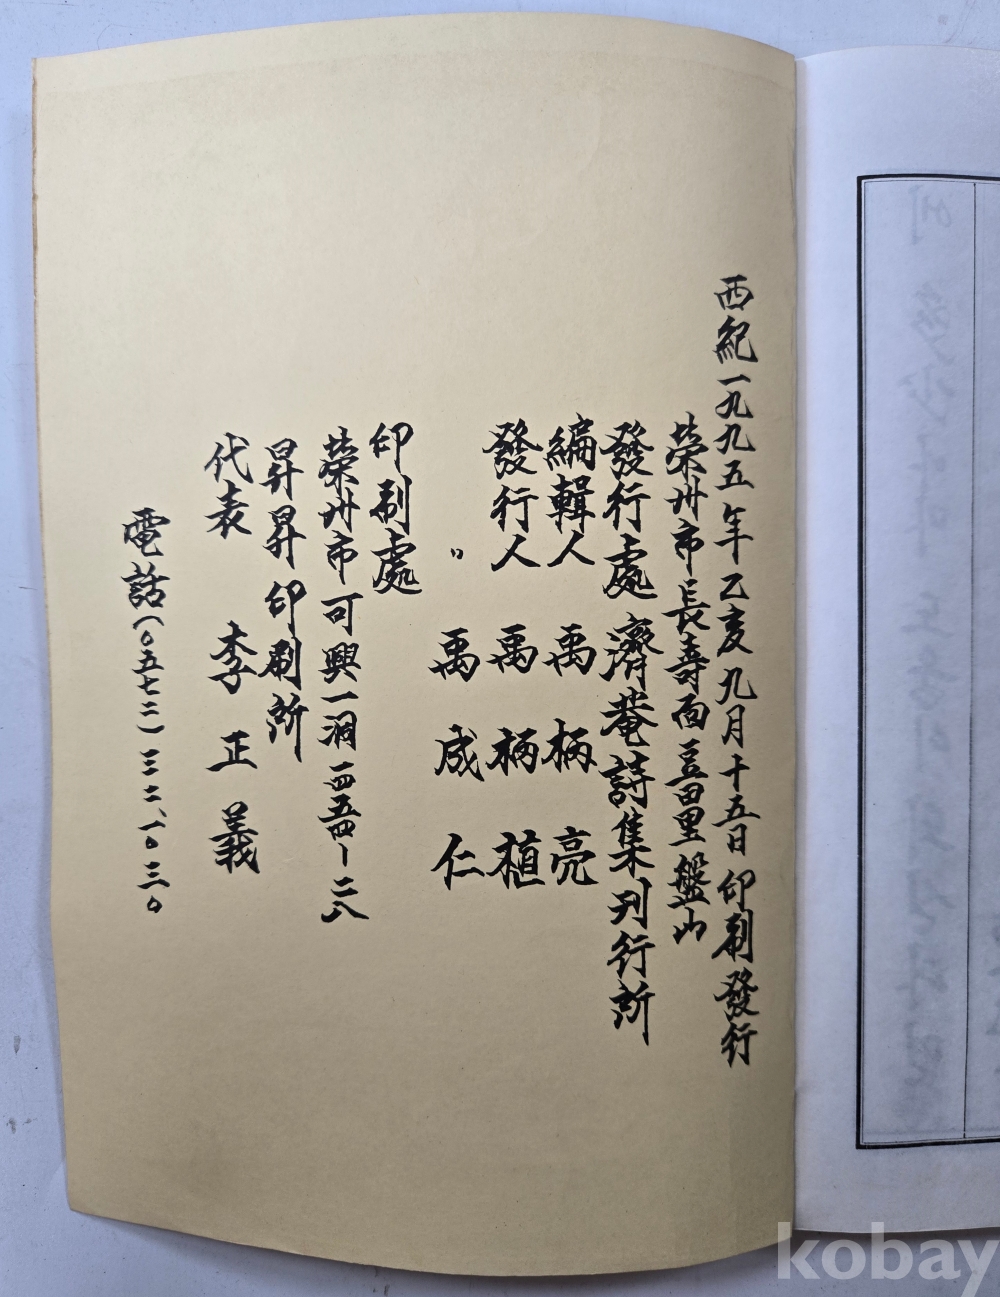 西紀一九九五年乙亥九月十五日印刷發行
榮州市長壽面壹里盤山
發行處 濟菴詩集刊行所
編輯人 禹柄亮
發行人 禹柄植
〃 禹成仁
印刷處
榮州市可興一洞一四五四-二八
昇昇印刷所
代表 李正義
電話(〇五七二)三二、一〇三〇
kobay